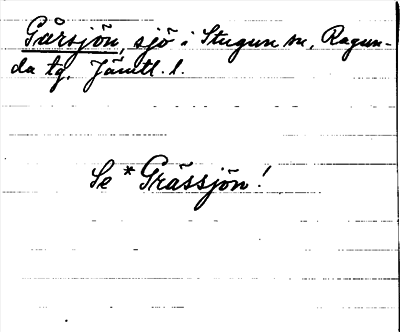 Gårsjön, sjö i Stugun sn, Ragun-
da tg, Jämtl. l.
Se *Grässjön!